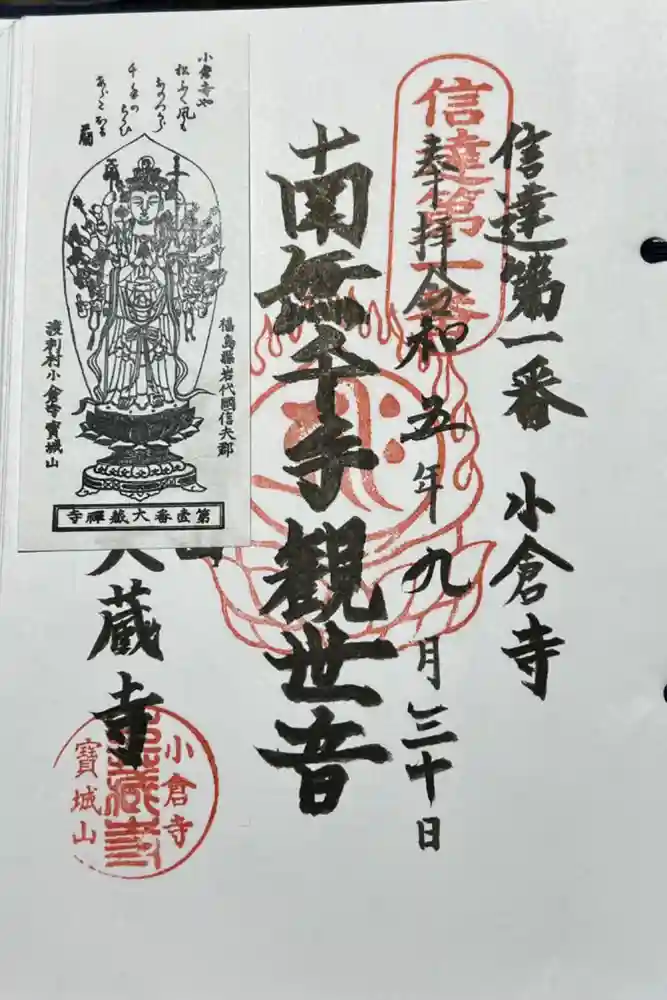 信達第一番 小倉寺
信達第一番
奉拝 令和五年九月三十日
南無千手観世音
大蔵寺
小倉寺
寶城山
小倉寺や
松ふく風も
千手の
福島縣岩代國信夫郡
渡利村小倉寺寶城山
第壹番大蔵禪寺